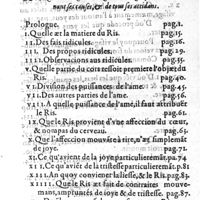 nant ses causes, & de tous ses accidans.
Prologue. pag.1.
I. Quelle æt la matiere du Ris. pag.15.
II. Des fais ridicules. pag.16.
III. Des propos ridicules. pag.29.
IIII. Observacions aus ridicules. pag.35.
V. Quelle partie du cors ressoit premiere l'objet du
Ris. pag.40.
VI. Division des puissances de l'ame. pag.45.
VII. Des autres parties de l'ame. pag.55.
VIII. A quelle puissance de l'ame, il faut attribuer
le Ris. pag.61.
IX. Que le Ris provient d'vne affeccion du cœur,
& nompas du cerveau. pag.63.
X. Que l'affeccion mouvante à rire, n'æt simplemãt
de joye.
XI. Ce qu'avient de la joye particulieremãt. pa.74
XII. Ce qu'aviẽt de la tristesse particulieremãt. 81
XIII. An quoy conviennet la liesse, & le Ris. pag.83.
XIIII. Que le Ris æt fait de contraires mouve-
mans, amprumtés de joye, & de tristesse. pag.87.